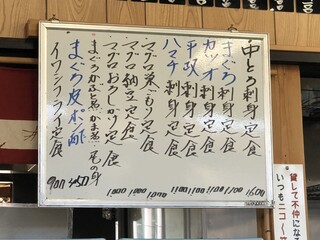 中とろ刺身定食 1600
まぐろ刺身定食 1100
カツオ刺身定食 1100
平政刺身定食 1100
ハマチ刺身定食 1100
マグロ茶づけ定食
マグロ納豆定食 1000
マグロおろしかけ定食 1000
まぐろかぶと煮 かま煮 尾の身
まぐろ皮ポン酢 450
イワシフライ定食 900
貸して不仲になる
いつもニコ